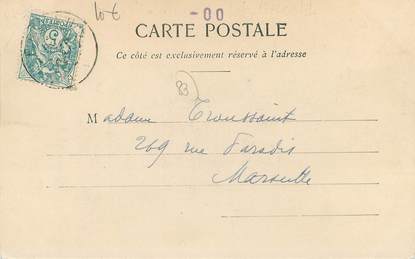 10€
-00
CARTE POSTALE
Ce côté est exclusivement réservé à l'adresse
5
83
Madame Troussaint
269 rue Paradis
Marseille